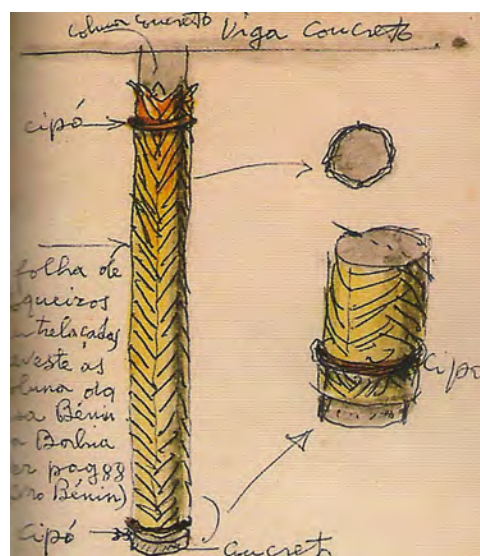 coluna concreto
Viga Concreto
cipó
folha de
queiros
trelaçados
veste as
luna da
sa Bénin
Borbia
er pag 88
Bénin)
cipó
cipó
Concreto